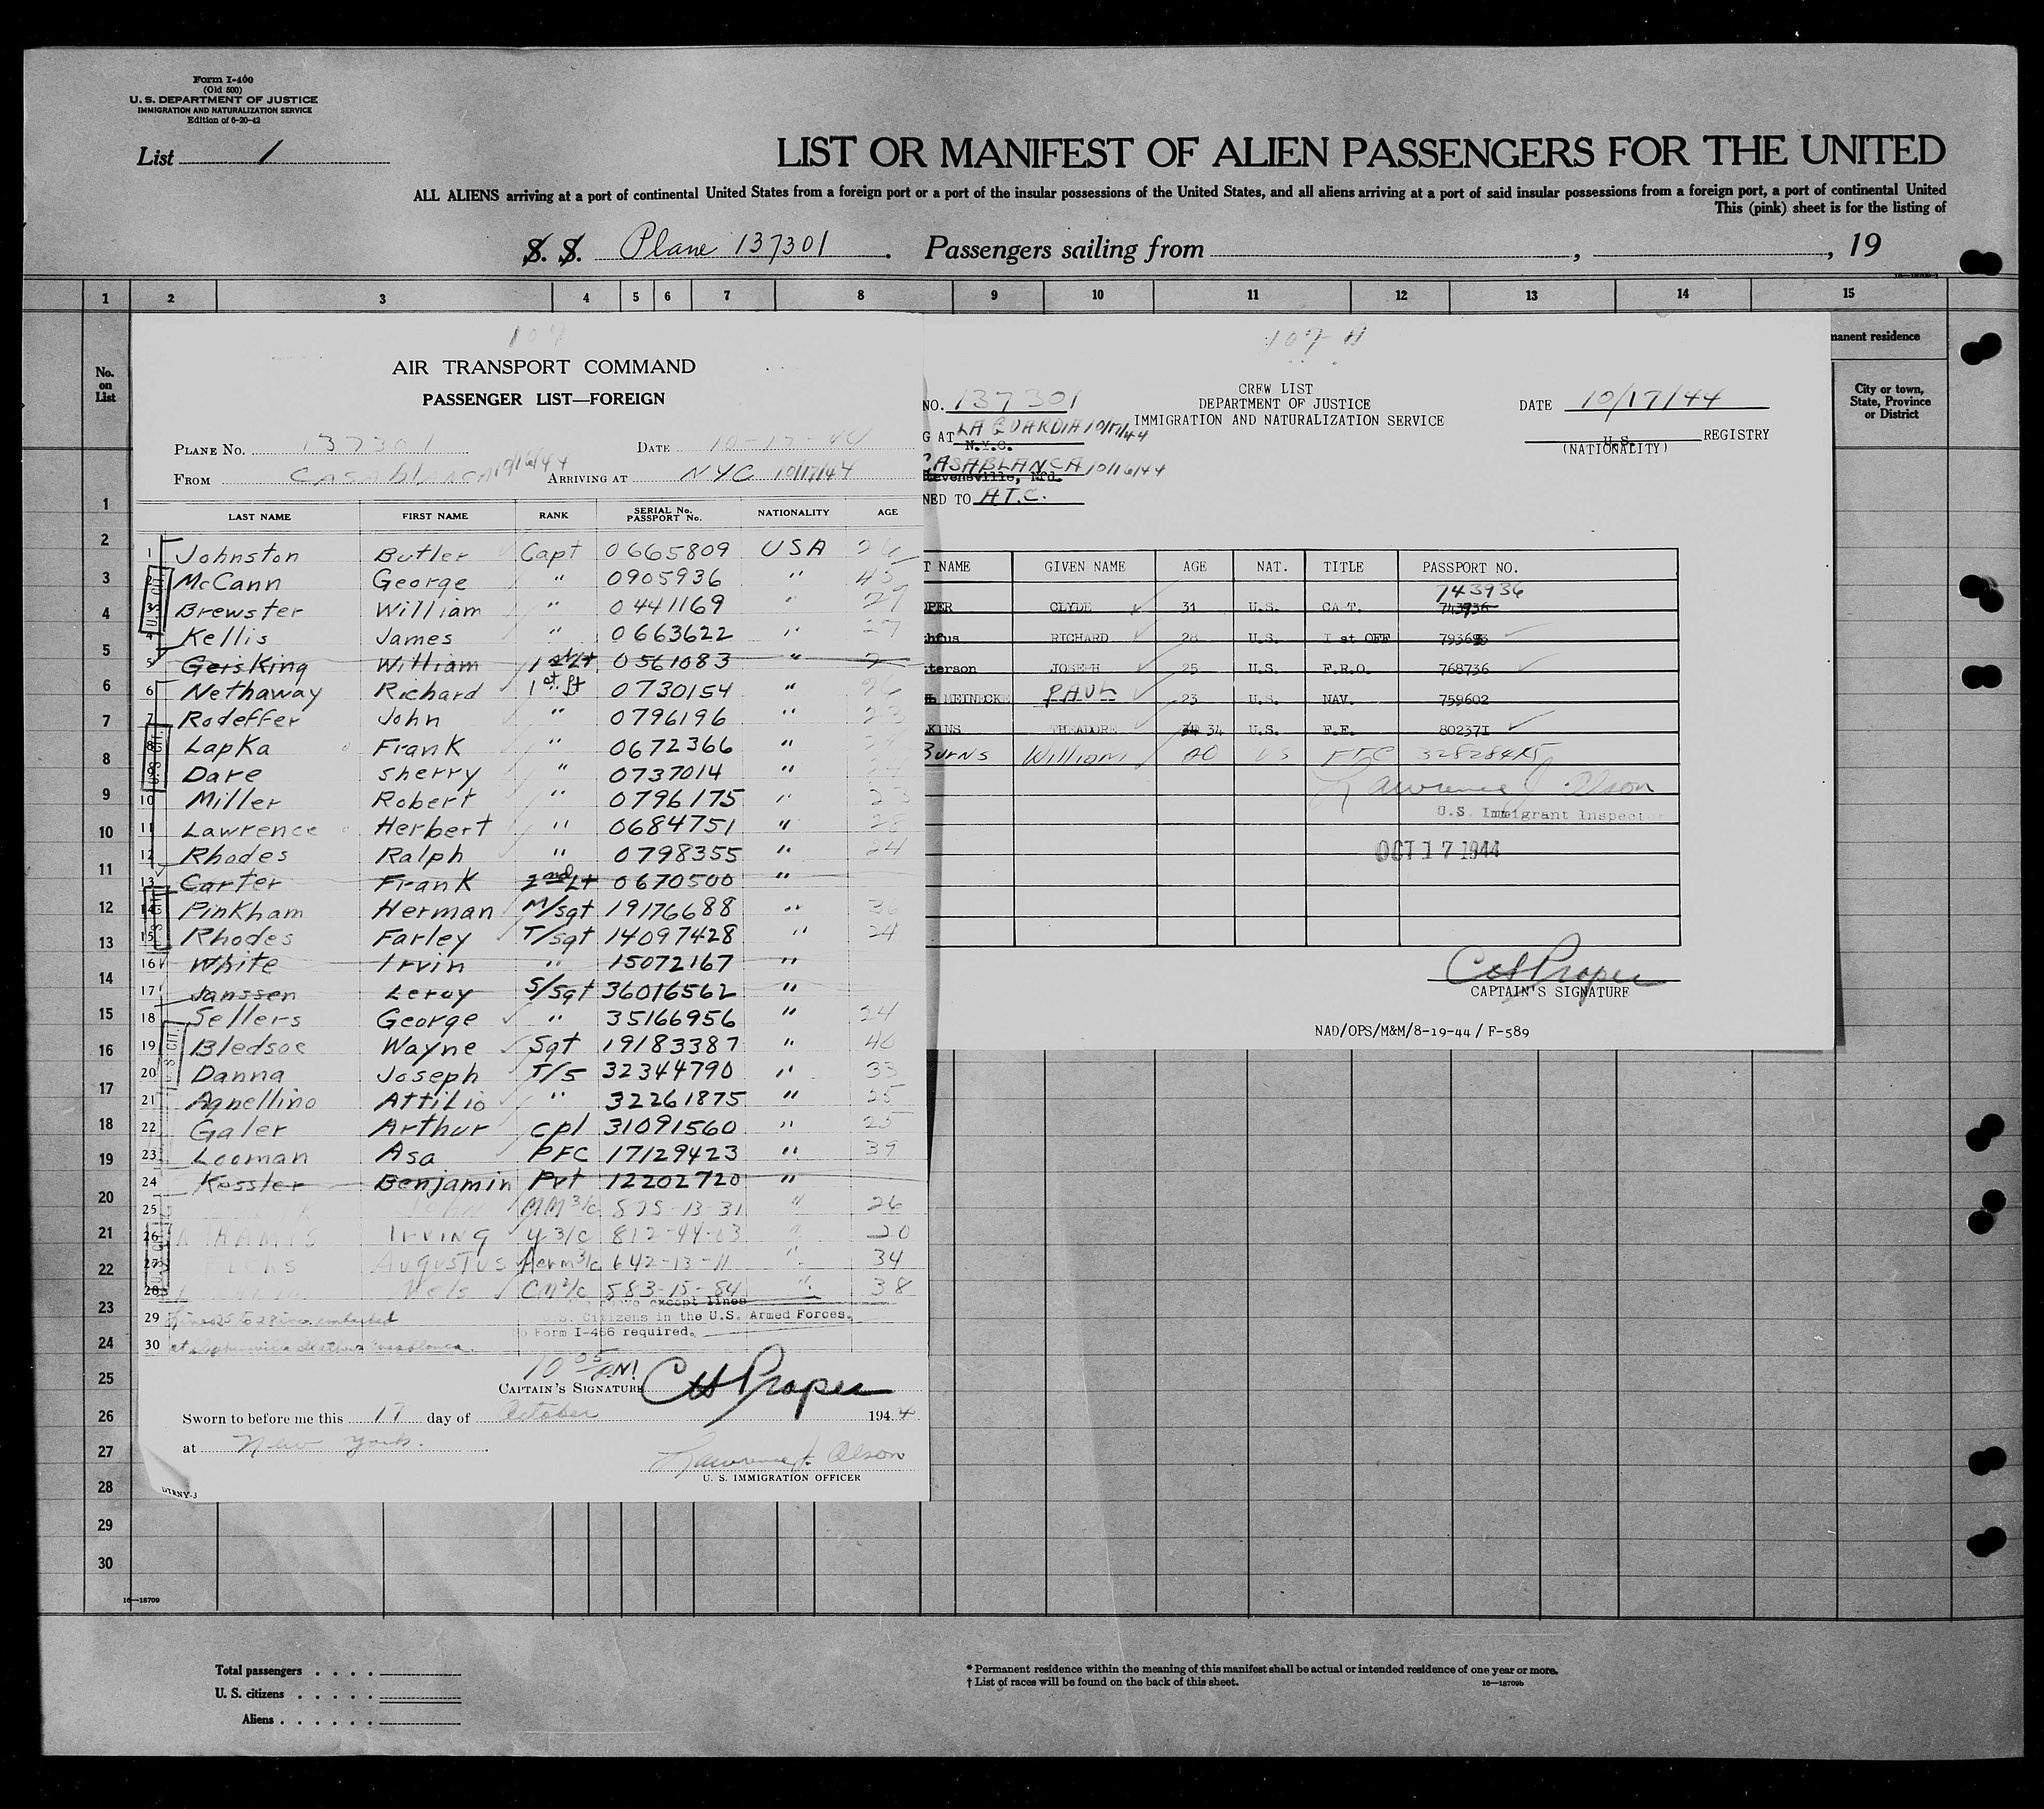 Form I-400
(Old 500)
U. S. DEPARTMENT OF JUSTICE
IMMIGRATION AND NATURALIZATION SERVICE
Edition of 6-20-42
List 1
LIST OR MANIFEST OF ALIEN PASSENGERS FOR THE UNITED
ALL ALIENS arriving at a port of continental United States from a foreign port or a port of the insular possessions of the United States, and all aliens arriving at a port of said insular possessions from a foreign port, a port of continental United
This (pink) sheet is for the listing of
S. S. Plane 137301. Passengers sailing from , , 19
1 2 3 4 5 6 7 8 9 10 11 12 13 14 15
No. on List
manent residence
City or town, State, Province or District
AIR TRANSPORT COMMAND
PASSENGER LIST—FOREIGN
PLANE No. 137301 DATE 10-17-44
FROM CASABLANCA 10/16/44 ARRIVING AT NYC 10/17/44
LAST NAME FIRST NAME RANK SERIAL No. PASSPORT No. NATIONALITY AGE
1 Johnston Butler Capt 0665809 USA
2 McCann George " 0905936 " 45
3 Brewster William " 0441169 " 29
4 Kellis James " 0663622 " 27
5 Geisking William 1st Lt 0561083 "
6 Nethaway Richard 1st Lt 0730154 "
7 Rodeffer John " 0796196 " 23
8 Lapka Frank " 0672366 "
9 Dare Sherry " 0737014 "
10 Miller Robert " 0796175 " 23
11 Lawrence Herbert " 0684751 " 28
12 Rhodes Ralph " 0798355 " 24
13 Carter Frank 2nd Lt 0670500 "
14 Pinkham Herman M/sgt 19176688 " 36
15 Rhodes Farley T/sgt 14097428 " 24
16 White Irvin " 15072167 "
17 Janssen Leroy S/Sgt 36016562 "
18 Sellers George " 35166956 " 24
19 Bledsoe Wayne Sgt 19183387 " 40
20 Danna Joseph T/5 32344790 " 33
21 Agnellino Attilio " 32261875 " 25
22 Galer Arthur cpl 31091560 " 25
23 Looman Asa PFC 17129423 " 39
24 Kessler Benjamin Pvt 12202720 "
25 MM 3/c 575-13-31 " 26
26 IRVING Y 3/c 812-44-03 " 20
27 AUGUSTUS Aerm 3/c 642-13-11 " 34
28 Nels CM 2/c 583-15-84 " 38
above except lines
29 Lines 25 to 28 inc. embarked U.S. Citizens in the U.S. Armed Forces.
Form I-466 required.
30 at others Casablanca.
10 05 PM
CAPTAIN'S SIGNATURE CH Proper
Sworn to before me this 17 day of October 1944
at New York.
Lawrence J. Olson
U. S. IMMIGRATION OFFICER
DTRNY-3
107-A
CREW LIST
DEPARTMENT OF JUSTICE
IMMIGRATION AND NATURALIZATION SERVICE
NO. 137301
DATE 10/17/44
G AT LA GUARDIA 10/17/44
N.Y.C.
U.S. REGISTRY
(NATIONALITY)
CASABLANCA 10/16/44
tevensville, Nfd.
NED TO A.T.C.
T NAME GIVEN NAME AGE NAT. TITLE PASSPORT NO.
743936
OPER CLYDE 31 U.S. CAPT. 743936
hfus RICHARD 28 U.S. I st OFF 793693
terson JOSEPH 25 U.S. F.R.O. 768736
MEINECKE PAUL 23 U.S. NAV. 759602
KINS THEADORE 34 U.S. F.E. 802371
Burns William 20 US FTC
Lawrence J. Olson
U.S. Immigrant Inspector
OCT 17 1944
CH Proper
CAPTAIN'S SIGNATURE
NAD/OPS/M&M/8-19-44 / F-589
1
2
3
4
5
6
7
8
9
10
11
12
13
14
15
16
17
18
19
20
21
22
23
24
25
26
27
28
29
30
16—18709
Total passengers . . . .
U. S. citizens . . . . .
Aliens . . . . . .
* Permanent residence within the meaning of this manifest shall be actual or intended residence of one year or more.
† List of races will be found on the back of this sheet.
16—18709b